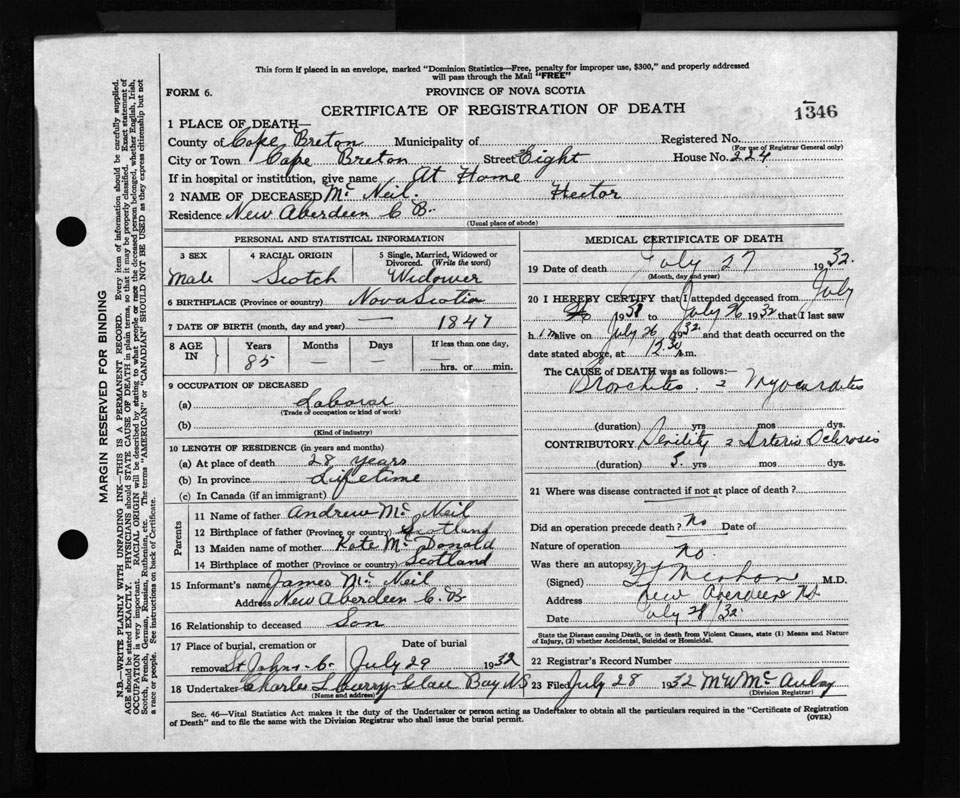 This form if placed in an envelope, marked "Dominion Statistics—Free, penalty for improper use, $300," and properly addressed
will pass through the Mail "FREE"
FORM 6.
PROVINCE OF NOVA SCOTIA
CERTIFICATE OF REGISTRATION OF DEATH
1346
1 PLACE OF DEATH—
County of Cape Breton Municipality of Registered No.
(For use of Registrar General only)
City or Town Cape Breton Street Eight House No. 224
If in hospital or institution, give name At Home
2 NAME OF DECEASED Mc Neil. Hector
Residence New Aberdeen C B.
(Usual place of abode)
PERSONAL AND STATISTICAL INFORMATION
3 SEX 4 RACIAL ORIGIN 5 Single, Married, Widowed or
Divorced. (Write the word)
Male Scotch Widower
6 BIRTHPLACE (Province or country) Nova Scotia
7 DATE OF BIRTH (month, day and year) — 1847
8 AGE IN Years Months Days If less than one day,
85 — — hrs. or min.
9 OCCUPATION OF DECEASED
(a) Laborer
(Trade of occupation or kind of work)
(b)
(Kind of industry)
10 LENGTH OF RESIDENCE (in years and months)
(a) At place of death 28 years
(b) In province Lifetime
(c) In Canada (if an immigrant)
Parents
11 Name of father Andrew Mc Neil
12 Birthplace of father (Province or country) Scotland
13 Maiden name of mother Kate Mc Donald
14 Birthplace of mother (Province or country) Scotland
15 Informant's name James Mc Neil
Address New Aberdeen C. B
16 Relationship to deceased Son
17 Place of burial, cremation or Date of burial
removal St Johns C. July 29 1932
18 Undertaker Charles L Curry Glace Bay NS
(Name and address)
MEDICAL CERTIFICATE OF DEATH
19 Date of death July 27 1932.
(Month, day and year)
20 I HEREBY CERTIFY that I attended deceased from July
1931 to July 26 1932 that I last saw
him alive on July 26 1932 and that death occurred on the
date stated above, at 12 30 A.m.
The CAUSE of DEATH was as follows:—
Bronchites. & Myocardites
(duration) yrs mos dys.
CONTRIBUTORY Senility & Arterio Sclerosis
(duration) 5. yrs mos dys.
21 Where was disease contracted if not at place of death?
Did an operation precede death? No Date of
Nature of operation
Was there an autopsy No.
(Signed) M.D.
Address New Aberdeen N.S.
Date July 28/32.
State the Disease causing Death, or in death from Violent Causes, state (1) Means and Nature
of Injury, (2) whether Accidental, Suicidal or Homicidal.
22 Registrar's Record Number
23 Filed July 28 1932 M W Mc Aulay
(Division Registrar)
Sec. 46—Vital Statistics Act makes it the duty of the Undertaker or person acting as Undertaker to obtain all the particulars required in the "Certificate of Registration
of Death" and to file the same with the Division Registrar who shall issue the burial permit.
(OVER)
MARGIN RESERVED FOR BINDING
N.B.—WRITE PLAINLY WITH UNFADING INK—THIS IS A PERMANENT RECORD. Every item of information should be carefully supplied.
AGE should be stated EXACTLY. PHYSICIANS should STATE CAUSE OF DEATH in plain terms, so that it may be properly classified. Exact statement of
OCCUPATION is very important. RACIAL ORIGIN will be described by stating to what people or race the deceased person belonged, whether English, Irish,
Scotch, French, German, Russian, Ruthenian, etc. The terms "AMERICAN" or "CANADIAN" SHOULD NOT BE USED as they express citizenship but not
a race or people. See instructions on back of Certificate.